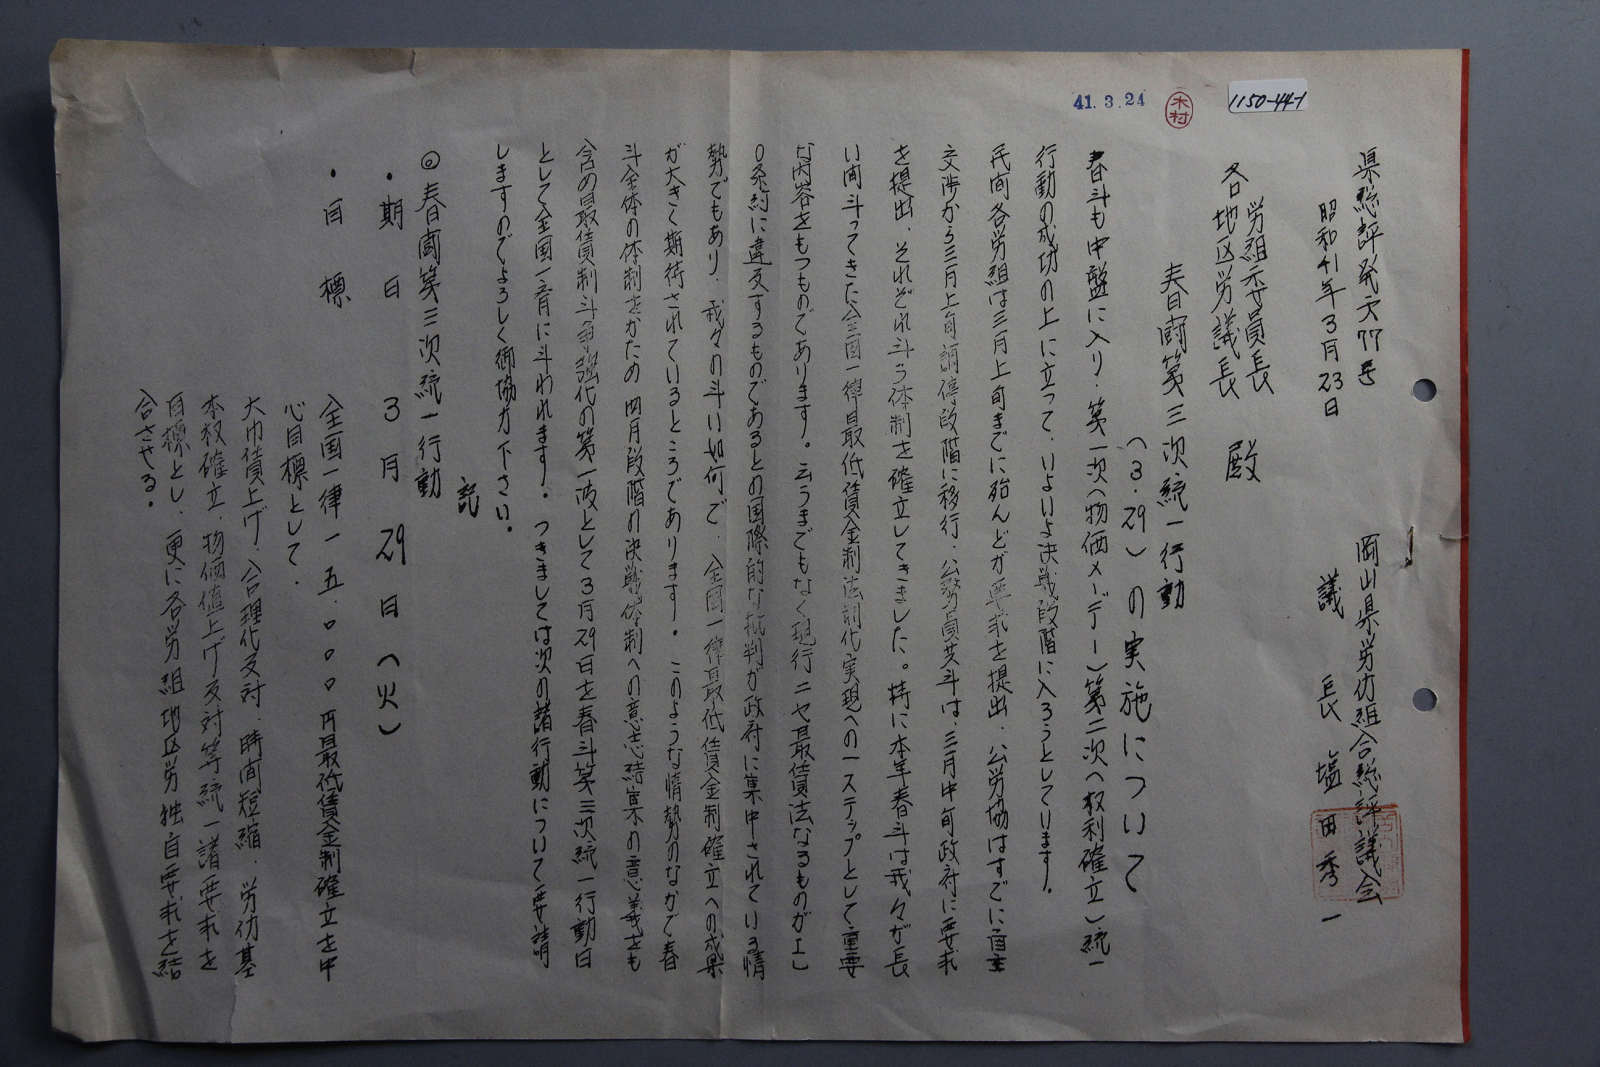 1150-44-1
41.3.24
木村
県総評発第77号
昭和41年3月23日
岡山県労仂組合総評議会
議長 塩田秀一
労組委員長
各地区労議長 殿
春闘第三次統一行動
(3.29)の実施について
春斗も中盤に入り、第一次(物価メーデー)第二次(权利確立)統一
行動の成功の上に立って、いよいよ決戦段階に入ろうとしています。
民間各労組は三月上旬までに殆んどが要求を提出、公労協はすでに自主
交渉から三月上旬調停段階に移行、公務員共斗は、三月中旬政府に要求
を提出、それぞれ斗う体制を確立してきました。特に本年春斗は我々が長
い間斗ってきた全国一律最低賃金制法制化実現への一ステップとして重要
な内容をもつものであります。云うまでもなく現行ニセ最賃法なるものがIL
O条約に違反するものであるとの国際的な批判が政府に集中されている情
勢でもあり、我々の斗い如何で、全国一律最低賃金制確立への成果
が大きく期待されているところであります。このような情勢のなかで春
斗全体の体制をかため四月段階の決戦体制への意志結集の意義をも
含め最賃制斗争強化の第一波として3月29日を春斗第三次統一行動日
として全国一斉に斗われます。つきましては次の諸行動について要請
しますのでよろしく御協力下さい。
記
◎春闘第三次統一行動
・期日 3月29日(火)
・目標 全国一律一五.〇〇〇円最低賃金制確立を中
心目標として、
大巾賃上げ、合理化反対、時間短縮、労仂基
本权確立、物価値上げ反対等統一諸要求を
目標とし、更に各労組地区労独自要求を結
合させる。